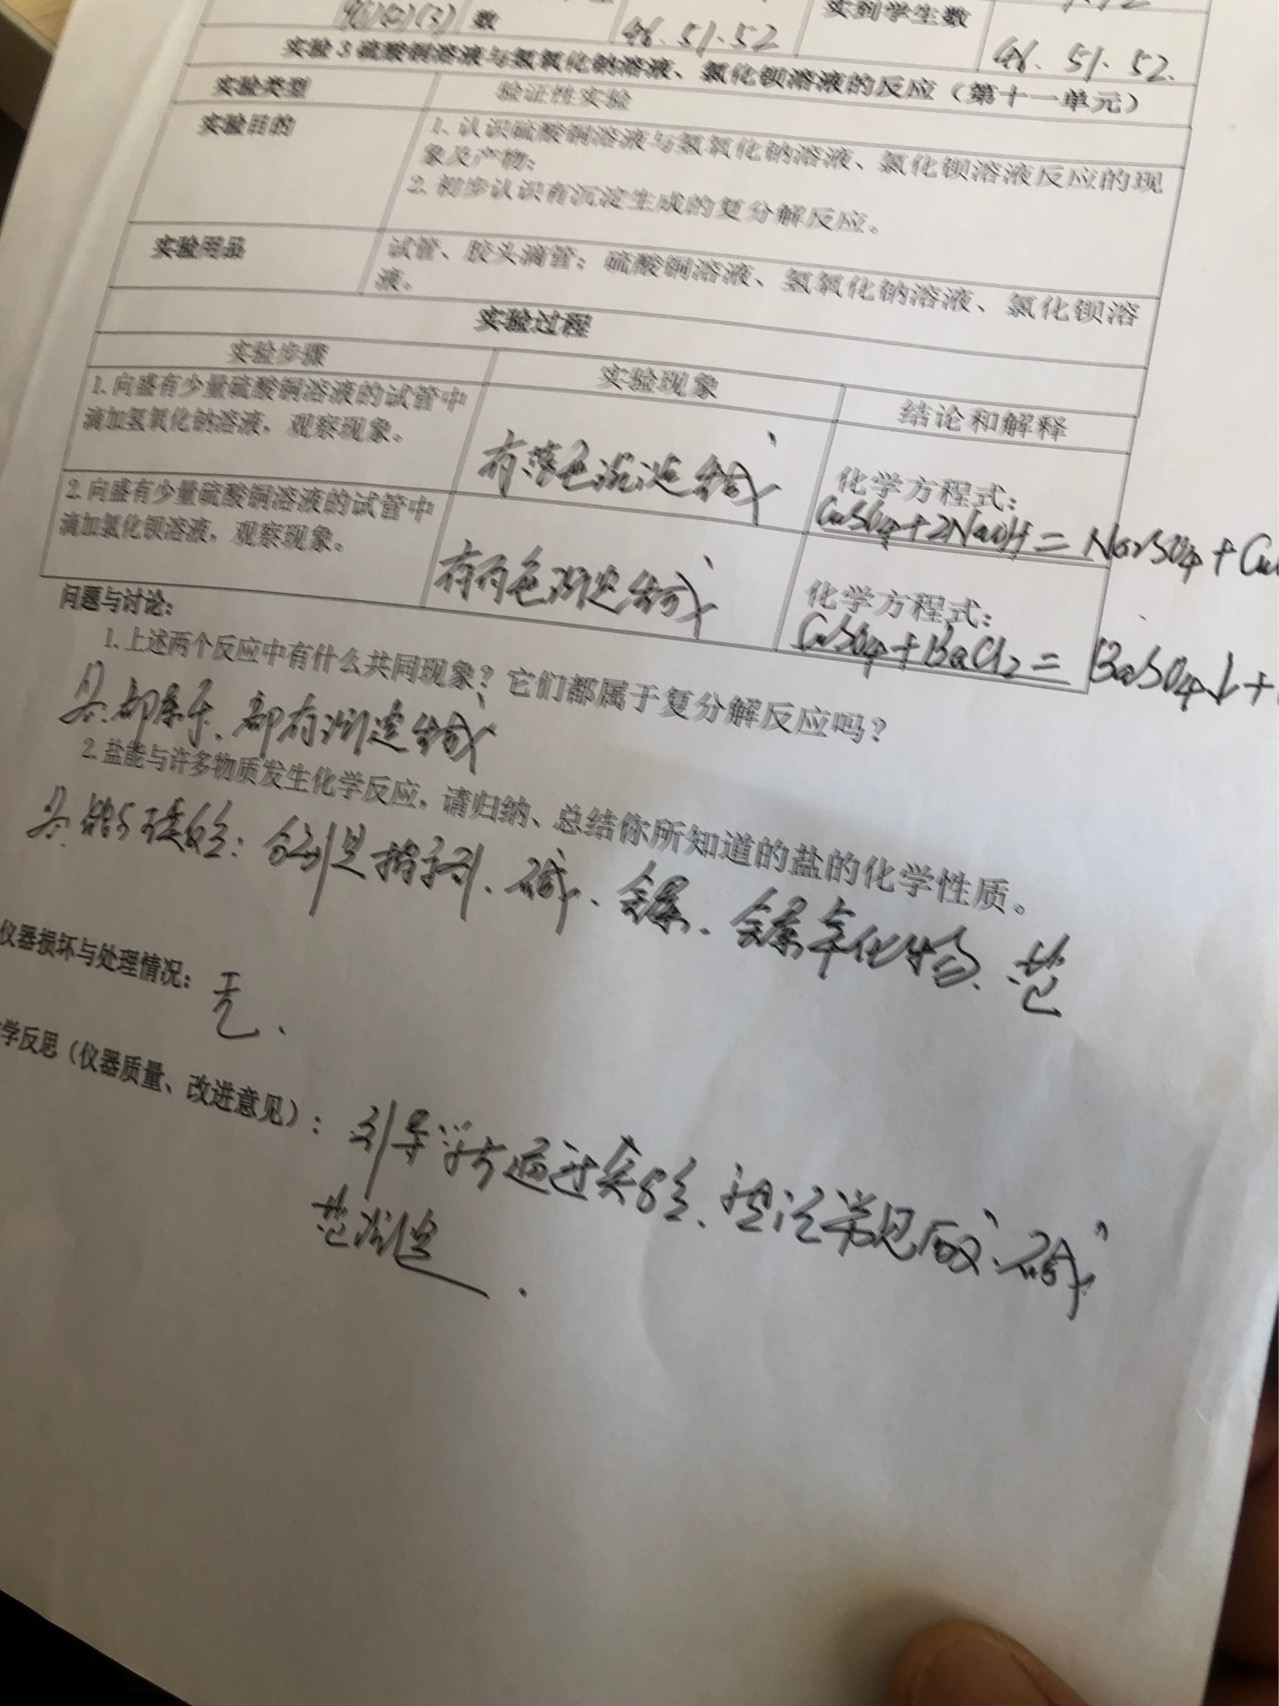 九(1)(2)(3) 数 46.51.52 实到学生数 46.51.52.
实验3 硫酸铜溶液与氢氧化钠溶液、氯化钡溶液的反应（第十一单元）
实验类型 验证性实验
实验目的 1. 认识硫酸铜溶液与氢氧化钠溶液、氯化钡溶液反应的现
象及产物；
2. 初步认识有沉淀生成的复分解反应。
实验用品 试管、胶头滴管；硫酸铜溶液、氢氧化钠溶液、氯化钡溶
液。
实验过程
实验步骤 实验现象 结论和解释
1. 向盛有少量硫酸铜溶液的试管中
滴加氢氧化钠溶液，观察现象。
有蓝色沉淀生成
化学方程式：
CuSO4+2NaOH=Na2SO4+Cu
2. 向盛有少量硫酸铜溶液的试管中
滴加氯化钡溶液，观察现象。
有白色沉淀生成
化学方程式：
CuSO4+BaCl2=BaSO4↓+
问题与讨论：
1. 上述两个反应中有什么共同现象？它们都属于复分解反应吗？
都属于、都有沉淀生成
2. 盐能与许多物质发生化学反应，请归纳、总结你所知道的盐的化学性质。
分别是指示剂、碱、金属、金属氧化物、盐
仪器损坏与处理情况： 无.
学反思（仪器质量、改进意见）： 引导学生通过实验、 常见的 碱
盐沉淀.